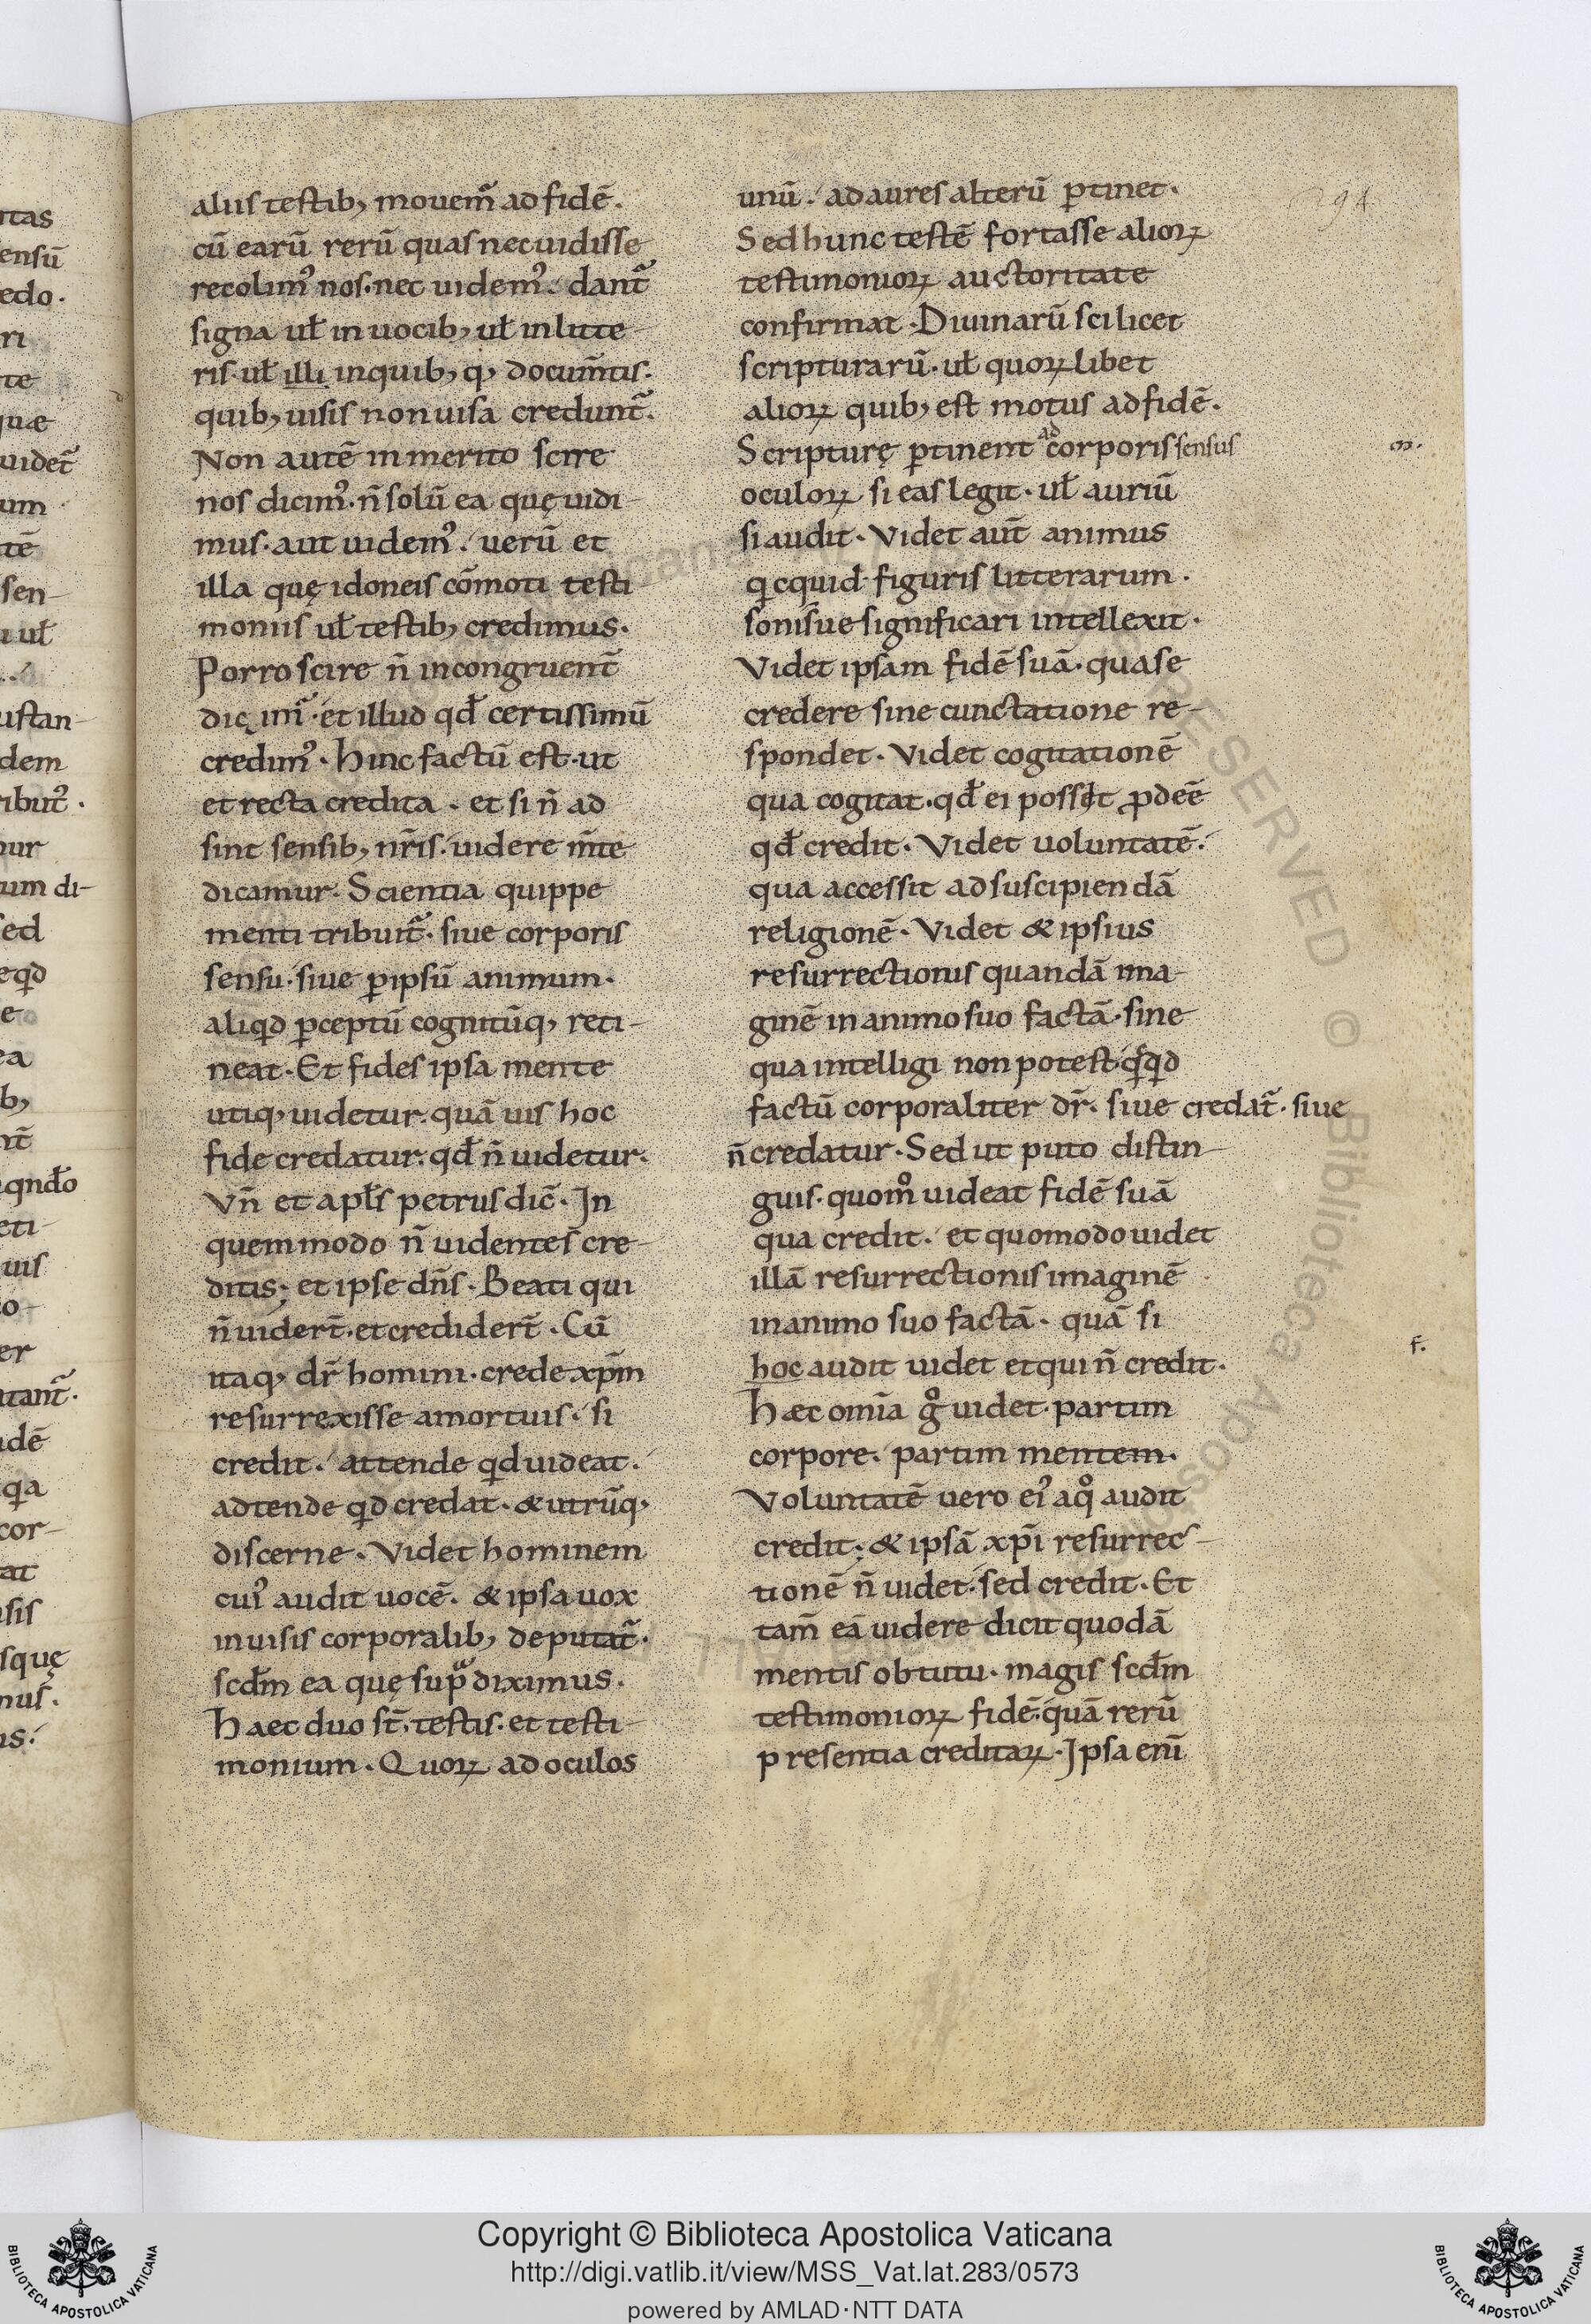 aliis testib; mouem᷑ ad fidē.
cū earū rerū quas nec uidisse
recolim᷒ nos. nec uidem᷒. dant᷑
signa ut̄ in uocib; ut̄ in litte-
ris. ut̄ illi inquib; q; docum̄tis.
quib; uisis non uisa credunt᷑.
Non autē inmerito scire
nos dicim᷒. n̄ solū ea quę uidi-
mus. aut uidem᷒. uerū et
illa quę idoneis cōmoti testi-
moniis ut̄ testib; credimus.
Porro scire n̄ incongruent̄
dicim᷑. et illud qd̄ certissimū
credim᷒. hinc factū est. ut
et recta credita. et si n̄ ad
sint sensib; nr̄is. uidere m̄te
dicamur. Scientia quippe
menti tribuit᷑. siue corporis
sensu. siue ꝑ ipsū animum.
aliqd ꝑceptū cognitūq; reti-
neat. Et fides ipsa mente
utiq; uidetur. quā uis hoc
fide credatur. qd̄ n̄ uidetur.
Vn̄ et apl̄s petrus dic̄. In
quem modo n̄ uidentes cre-
ditis; et ipse dn̄s. Beati qui
n̄ uidert̄. et credidert̄. Cū
itaq; dr̄ homini. crede xp̄m
resurrexisse a mortuis. si
credit. attende qd uideat.
adtende qd credat. & utrūq;
discerne. Videt hominem
cui᷒ audit uocē. & ipsa uox
in uisis corporalib; deputat᷑.
scd̄m ea quę sup̄ diximus.
haec duo st̄. testis. et testi-
monium. Quoꝝ ad oculos
unū. ad aures alterū ꝑtinet.
Sed hunc testē fortasse alioꝝ
testimonioꝝ auctoritate
confirmat. Diuinarū scilicet
scripturarū. ut̄ quoꝝ libet
alioꝝ quib; est motus ad fidē.
Scripturę ꝑtinent ad corporis sensus
m.
oculoꝝ si eas legit. ut̄ auriū
si audit. Videt aut̄ animus
qicquid figuris litterarum.
sonisue significari intellexit.
Videt ipsam fidē suā. qua se
credere sine cunctatione re-
spondet. Videt cogitationē
qua cogitat. qd̄ ei possit ꝓdeē̄
qd̄ credit. Videt uoluntatē.
qua accessit ad suscipiendā
religionē. Videt & ipsius
resurrectionis quandā ima-
ginē in animo suo factā. sine
qua intelligi non potest qꝗd
factū corporaliter dr̄. siue credat᷑. siue
n̄ credatur. Sed ut puto distin-
guis. quom̊ uideat fidē suā
qua credit. et quomodo uidet
illā resurrectionis imaginē
in animo suo factā. quā si
f.
hoc audit uidet et qui n̄ credit.
Haec omīa g̊ uidet. partim
corpore. partim mentem.
Voluntatē uero ei᷒ a q̊ audit
credit; & ipsā xp̄i resurrec-
tionē n̄ uidet. sed credit. Et
tam̄ eā uidere dicit quodā
mentis obtutu. magis scd̄m
testimonioꝝ fidē. quā rerū
presentia creditaꝝ. Ipsa eni᷒
Copyright © Biblioteca Apostolica Vaticana
http://digi.vatlib.it/view/MSS_Vat.lat.283/0573
powered by AMLAD·NTT DATA
BIBLIOTECA APOSTOLICA VATICANA
BIBLIOTECA APOSTOLICA VATICANA